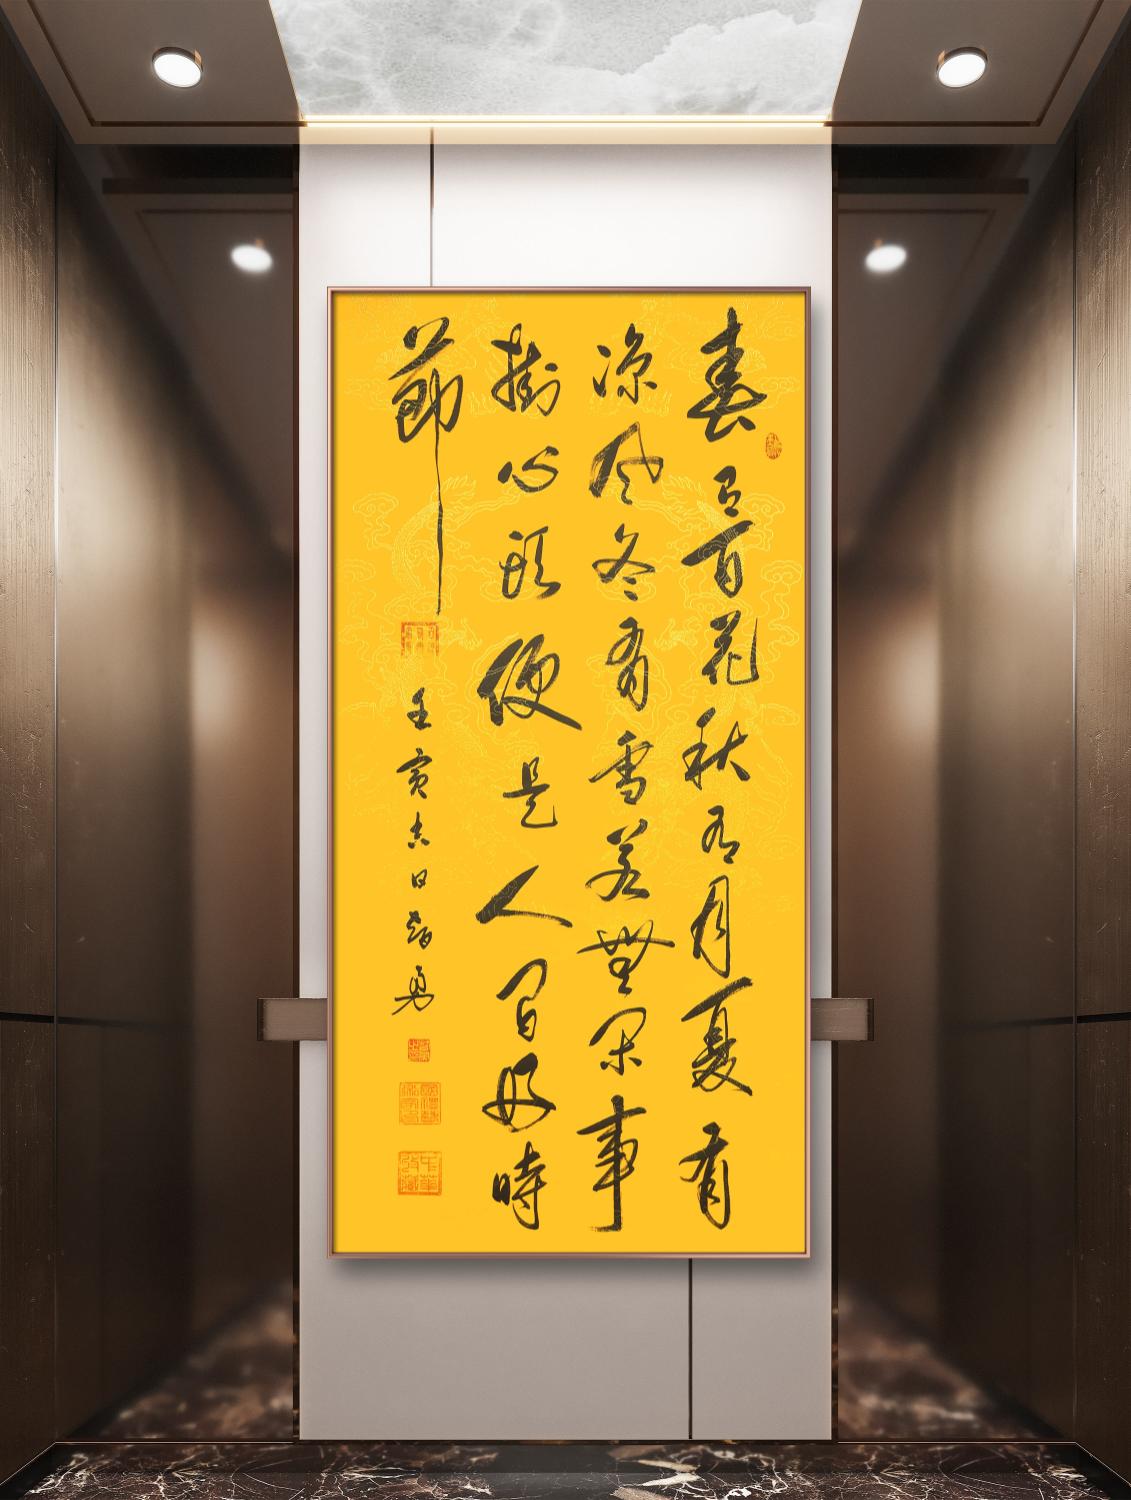 春有百花秋有月夏有
涼風冬有雪若無閑事
掛心頭便是人間好時
節
壬寅吉日智勇